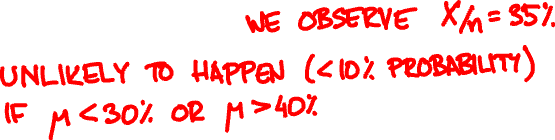 WE OBSERVE X/n = 35%
UNLIKELY TO HAPPEN (<10% PROBABILITY)
IF μ<30% OR μ>40%